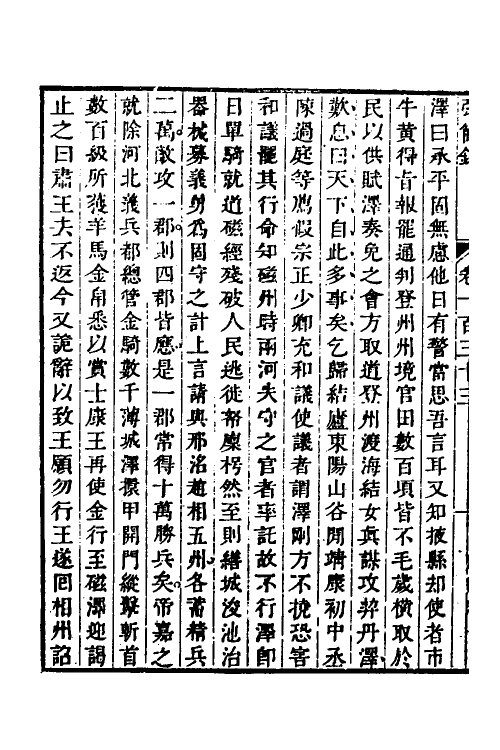 卷一百三十三
澤曰承平固無慮他日有警當思吾言耳又知掖縣却使者市
牛黃得旨報罷通判登州州境官田數百項皆不毛歲橫取於
民以供賦澤奏免之會方取道登州渡海結女眞謀攻契丹澤
歎息曰天下自此多事矣乞歸結廬東陽山谷閒靖康初中丞
陳過庭等薦假宗正少卿充和議使議者謂澤剛方不撓恐害
和議罷其行命知磁州時兩河失守之官者率託故不行澤卽
日單騎就道磁經殘破人民逃徙帑廩枵然至則繕城浚池治
器械募義勇爲固守之計上言請與邢洺趙相五州各蓄精兵
二萬敵攻一郡則四郡皆應是一郡常得十萬勝兵矣帝嘉之
就除河北義兵都總管金騎數千薄城澤擐甲開門縱擊斬首
數百級所獲羊馬金帛悉以賞士康王再使金行至磁澤迎謁
止之曰肅王去不返今又詭辭以致王願勿行王遂囘相州詔